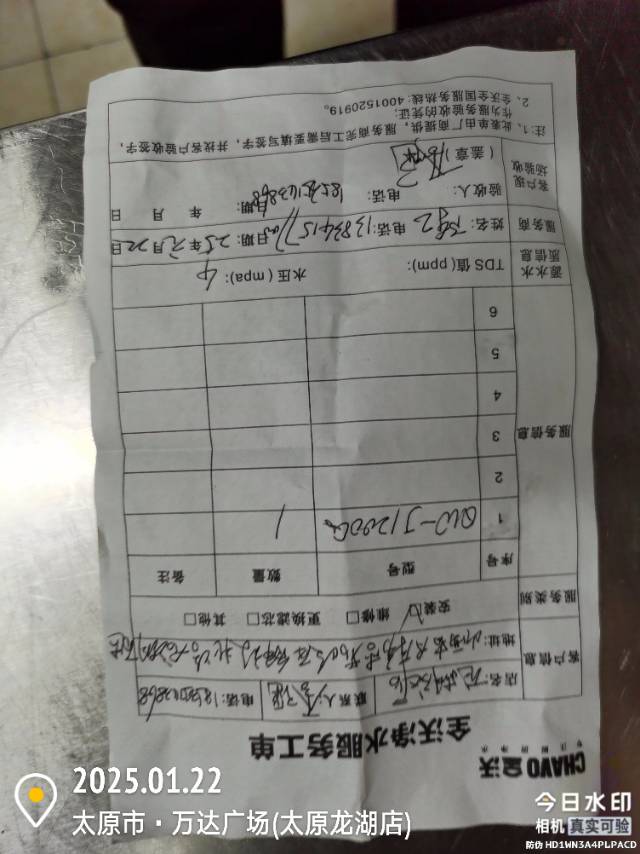 CHAVO 全沃
专注厨房净水
全沃净水服务工单
客户信息
店名:
联系人:
电话:
地址:
服务类别
安装□ 维修□ 更换滤芯□ 其他□
服务信息
序号 型号 数量 备注
1 QW-J1200G 1
2
3
4
5
6
源水水质信息
TDS值(ppm): 水压(mpa): 4
服务商
姓名: 电话: 日期: 25年元月22日
客户现场验收
验收人: 电话: 日期: 年 月 日
(盖章)
注: 1、此表单由厂商提供,服务商完工后需要填写签字,并找客户验收签字,
作为服务验收的凭证;
2、全沃全国服务热线:4001520919。
2025.01.22
太原市·万达广场(太原龙湖店)
今日水印
相机 真实可验
防伪 HD1WN3A4PLPACD